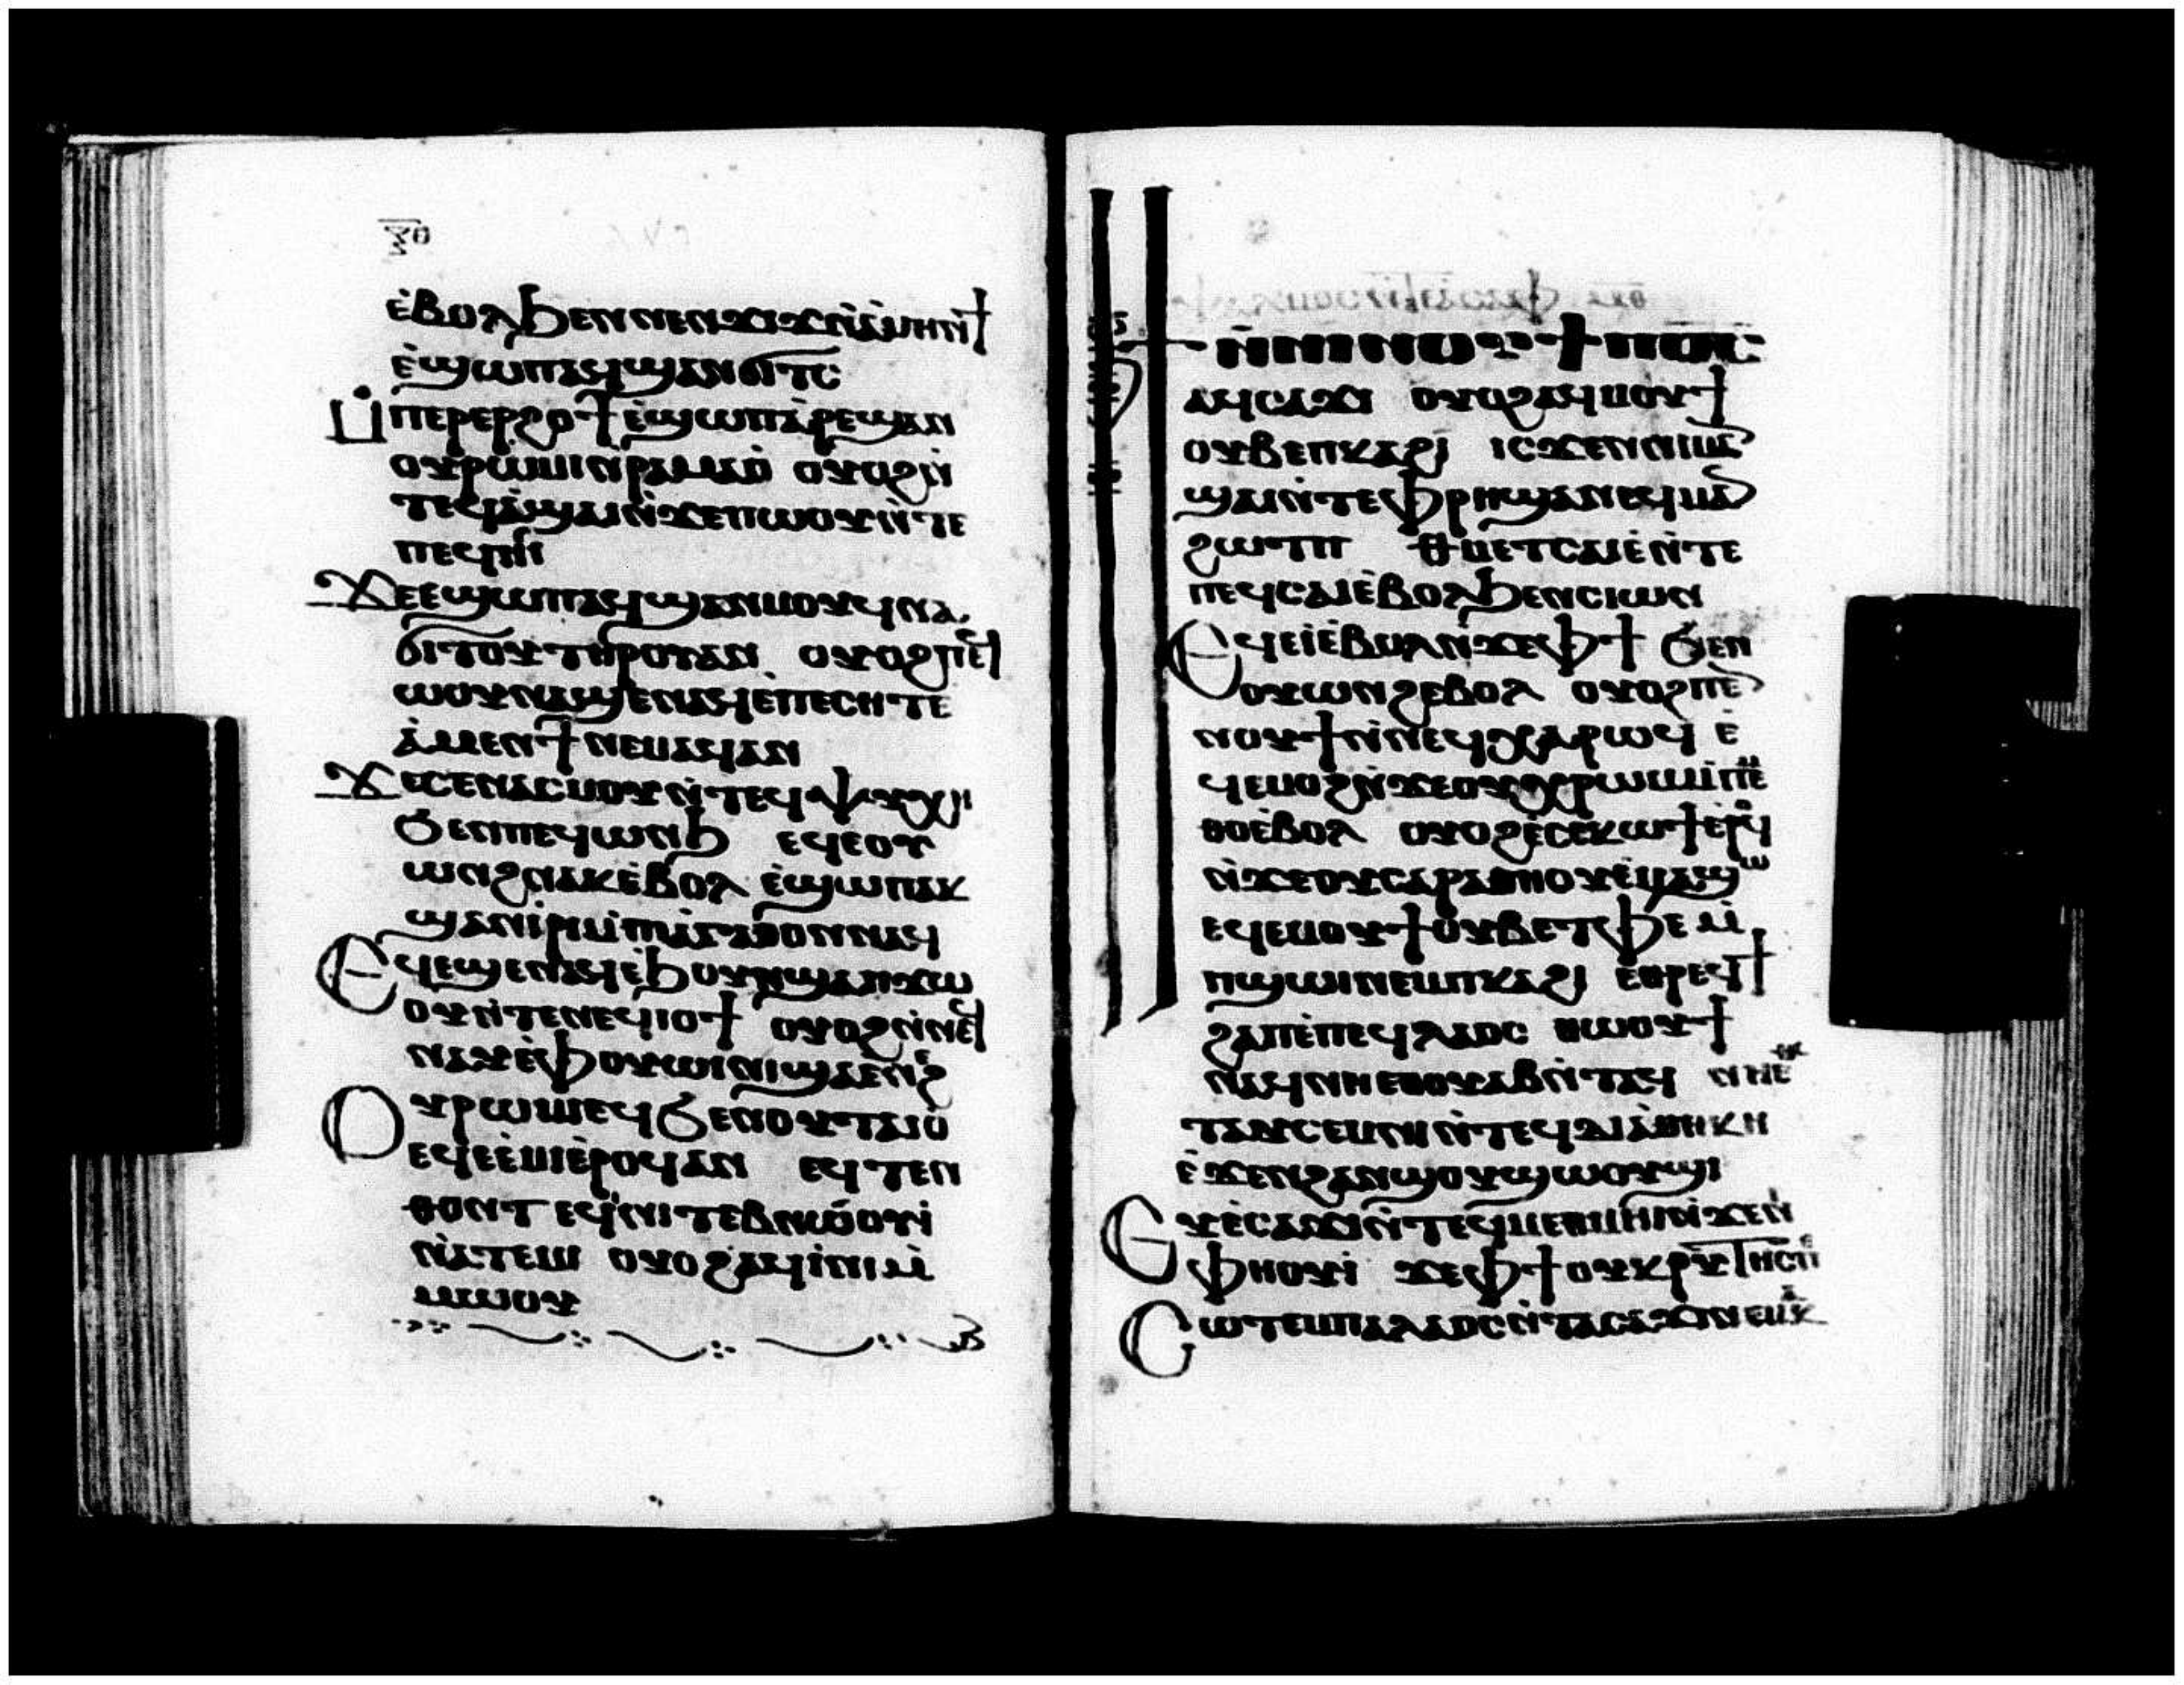 ⲝⲑ
ⲉ̀ⲃⲟⲗϧⲉⲛⲛⲉⲛϫⲓϫⲛ̀ⲁ̀ⲙⲉⲛϯ
ⲉ̀ϣⲱⲡⲁϥϣⲁⲛϭⲓⲧⲥ
Ⲙ̀ⲡⲉⲣⲉⲣϩⲟϯⲉ̀ϣⲱⲡⲁ̀ⲣⲉϣⲁⲛ
ⲟⲩⲣⲱⲙⲓⲛⲣⲁⲙⲁⲟ̀ ⲟⲩⲟϩⲛ̀
ⲧⲉϥⲁ̀ϣⲁⲓⲛ̀ϫⲉⲡⲱⲟⲩⲛ̀ⲧⲉ
ⲡⲉϥⲏⲓ
Ϫⲉⲉϣⲱⲡⲁϥϣⲁⲛⲙⲟⲩϥⲛⲁ
ϭⲓⲧⲟⲩⲧⲏⲣⲟⲩⲁⲛ ⲟⲩⲟϩⲡⲉϥ
ⲱⲟⲩⲛⲁϣⲉⲛⲁϥⲉⲡⲉⲥⲏⲧⲉ
ⲁ̀ⲙⲉⲛϯⲛⲉⲙⲁϥⲁⲛ
Ϫⲉⲥⲉⲛⲁⲥⲙⲟⲩⲛ̀ⲧⲉϥⲯⲩⲭⲏ
ϧⲉⲛⲡⲉϥⲱⲛϧ ⲉϥⲉⲟⲩ
ⲱⲛϩⲛⲁⲕⲉ̀ⲃⲟⲗ ⲉ̀ϣⲱⲡⲁⲕ
ϣⲁⲛⲓ̀ⲣⲓⲙ̀ⲡⲓⲁⲅⲁⲑⲟⲛⲛⲁϥ
Ⲉϥⲉϣⲉⲛⲁϥⲉ̀ϧⲟⲩⲛϣⲁⲡϫⲱ
ⲟⲩⲛ̀ⲧⲉⲛⲉϥⲓⲟϯ ⲟⲩⲟϩⲛ̀ⲛⲉϥ
ⲛⲁⲩⲉ̀ⲫⲟⲩⲱⲓⲛⲓϣⲁⲉⲛⲉϩ
Ⲟⲩⲣⲱⲙⲉϥϧⲉⲛⲟⲩⲧⲁⲓⲟ̀
ⲉϥⲉⲉ̀ⲙⲓⲉ̀ⲣⲟϥⲁⲛ ⲉϥⲧⲉⲛ
ⲑⲟⲛⲧ ⲉϥⲛⲓⲧⲉⲃⲛⲱⲟⲩⲓ̀
ⲛ̀ⲁⲧⲉⲙⲓ ⲟⲩⲟϩⲁϥⲓ̀ⲛⲓⲙ̀
ⲙⲱⲟⲩ
ⲫⲛⲟⲩϯⲛ̀ⲧⲉⲛⲓⲛⲟⲩϯⲡⲟ̅ⲥ̅
ⲁϥⲥⲁϫⲓ ⲟⲩⲟϩⲁϥⲙⲟⲩϯ
ⲟⲩⲃⲉⲡⲕⲁϩⲓ ⲓⲥϫⲉⲛⲛⲓⲙⲁ
ϣⲁⲓⲛ̀ⲧⲉⲫⲣⲏϣⲁⲛⲉϥⲙⲁ
ϩⲱⲧⲡ ⲑⲙⲉⲧⲥⲁⲓⲉ̀ⲛ̀ⲧⲉ
ⲡⲉϥⲥⲁⲓⲉ̀ⲃⲟⲗϧⲉⲛⲥⲓⲱⲛ
Ⲉϥⲉⲓ̀ⲉ̀ⲃⲟⲗⲛ̀ϫⲉⲫϯ ϧⲉⲛ
ⲟⲩⲱⲛϩⲉⲃⲟⲗ ⲟⲩⲟϩⲡⲉ
ⲛⲟⲩϯⲛ̀ⲛⲉϥⲭⲁⲣⲱϥ ⲉ̀
ϥⲉⲙⲟϩⲛ̀ϫⲉⲟⲩⲭⲣⲱⲙⲙ̀ⲡⲉⲙ
ⲑⲟⲉ̀ⲃⲟⲗ ⲟⲩⲟϩⲉ̀ⲥⲉⲕⲱϯⲉⲣⲟϥ
ⲛ̀ϫⲉⲟⲩⲥⲁⲣⲁⲑⲏⲟⲩⲉ̀ⲙⲁϣⲱ
ⲉϥⲉⲙⲟⲩϯⲟⲩⲃⲉⲧⲫⲉ ⲙ̀
ⲡϣⲱⲓⲛⲉⲙⲡⲕⲁϩⲓ ⲉⲑⲣⲉϥϯ
ϩⲁⲡⲉ̀ⲡⲉϥⲗⲁⲟⲥ ⲑⲱⲟⲩϯ
ⲛⲁϥⲛⲛⲉⲑⲟⲩⲁⲃⲛ̀ⲧⲁϥ ⲛⲏⲉⲧ
ⲧⲁⲛⲥⲉⲙⲛⲏⲛ̀ⲧⲉϥⲇⲓⲁ̀ⲑⲏⲕⲏ
ⲉ̀ϫⲉⲛϩⲁⲛϣⲟⲩϣⲱⲟⲩϣⲓ
Ⲉⲩⲉ̀ⲥⲁϫⲓⲛ̀ⲧⲉϥⲙⲉⲑⲙⲏⲓⲛ̀ϫⲉⲛ
ⲫⲏⲟⲩⲓ̀ ϫⲉⲫϯⲟⲩⲕⲣⲓⲧⲏⲥⲡⲉ
Ⲥⲱⲧⲉⲙⲡⲁⲗⲁⲟⲥⲛ̀ⲧⲁⲥⲁϫⲓⲛⲉⲙⲁⲕ